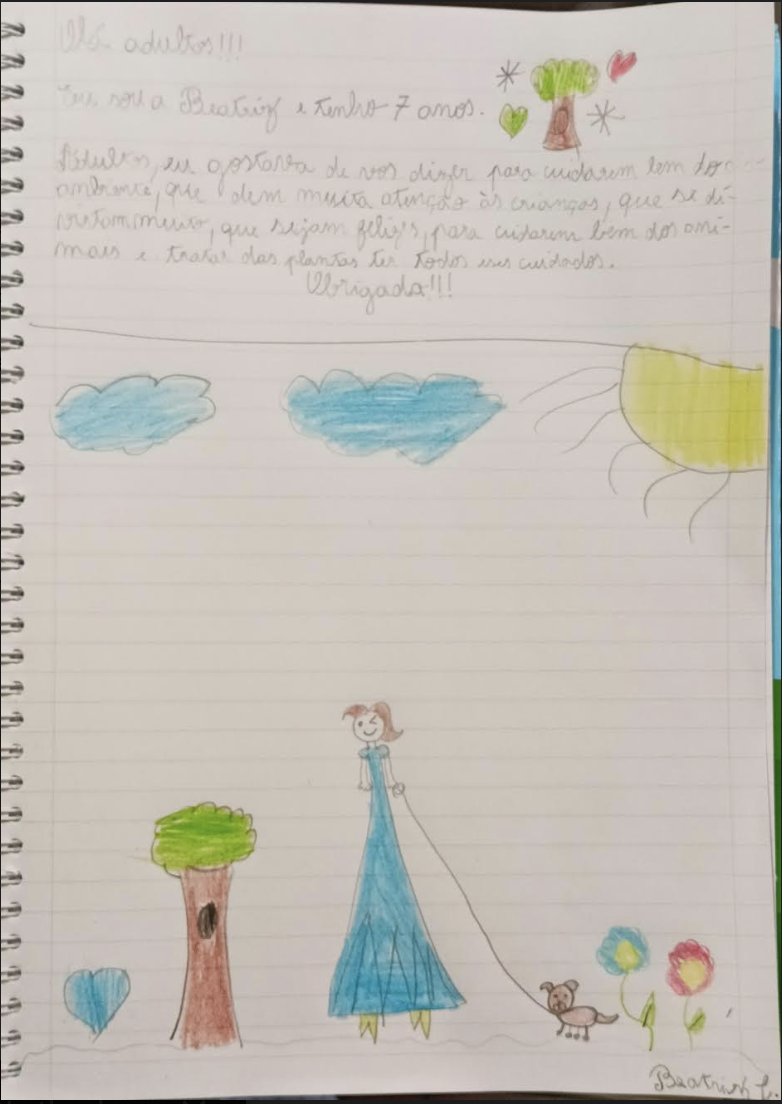 Olá adultos!!!
Eu sou a Beatriz e tenho 7 anos.
Adultos, eu gostava de vos dizer para cuidarem bem do
ambiente, que dem muita atenção às crianças, que se di-
virtam muito, que sejam felizes, para cuidarem bem dos ani-
mais e tratar das plantas ter todos esses cuidados.
Obrigada!!!
Beatriz C.